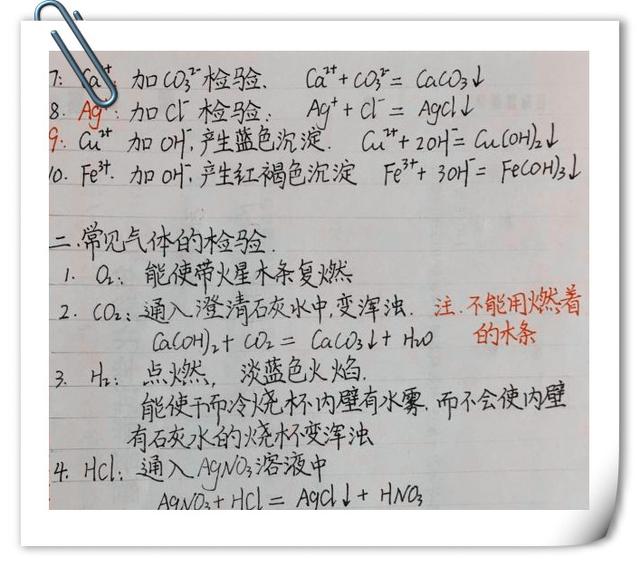 7: Ca²⁺: 加CO₃²⁻检验. Ca²⁺+CO₃²⁻= CaCO₃↓
8. Ag⁺: 加Cl⁻检验: Ag⁺+Cl⁻= AgCl↓
9. Cu²⁺ 加OH⁻,产生蓝色沉淀. Cu²⁺+2OH⁻=Cu(OH)₂↓
10. Fe³⁺. 加OH⁻,产生红褐色沉淀 Fe³⁺+3OH⁻= Fe(OH)₃↓
二.常见气体的检验.
1. O₂: 能使带火星木条复燃
2. CO₂: 通入澄清石灰水中,变浑浊. 注.不能用燃着
Ca(OH)₂+CO₂= CaCO₃↓+H₂O 的木条
3. H₂: 点燃, 淡蓝色火焰.
能使干而冷烧杯内壁有水雾.而不会使内壁
有石灰水的烧杯变浑浊
4. HCl: 通入AgNO₃溶液中
AgNO₃+HCl= AgCl↓+HNO₃